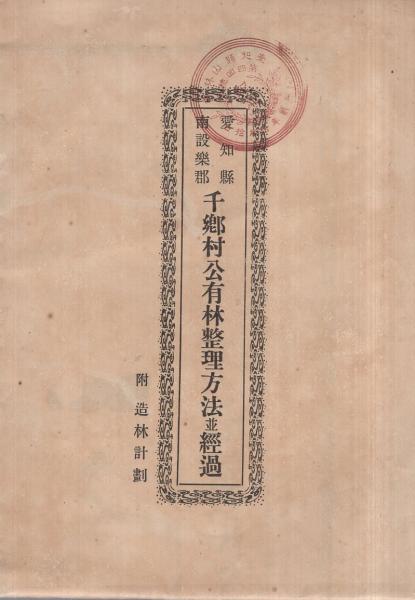 愛知縣
南設樂郡
千鄕村公有林整理方法並經過
附造林計劃